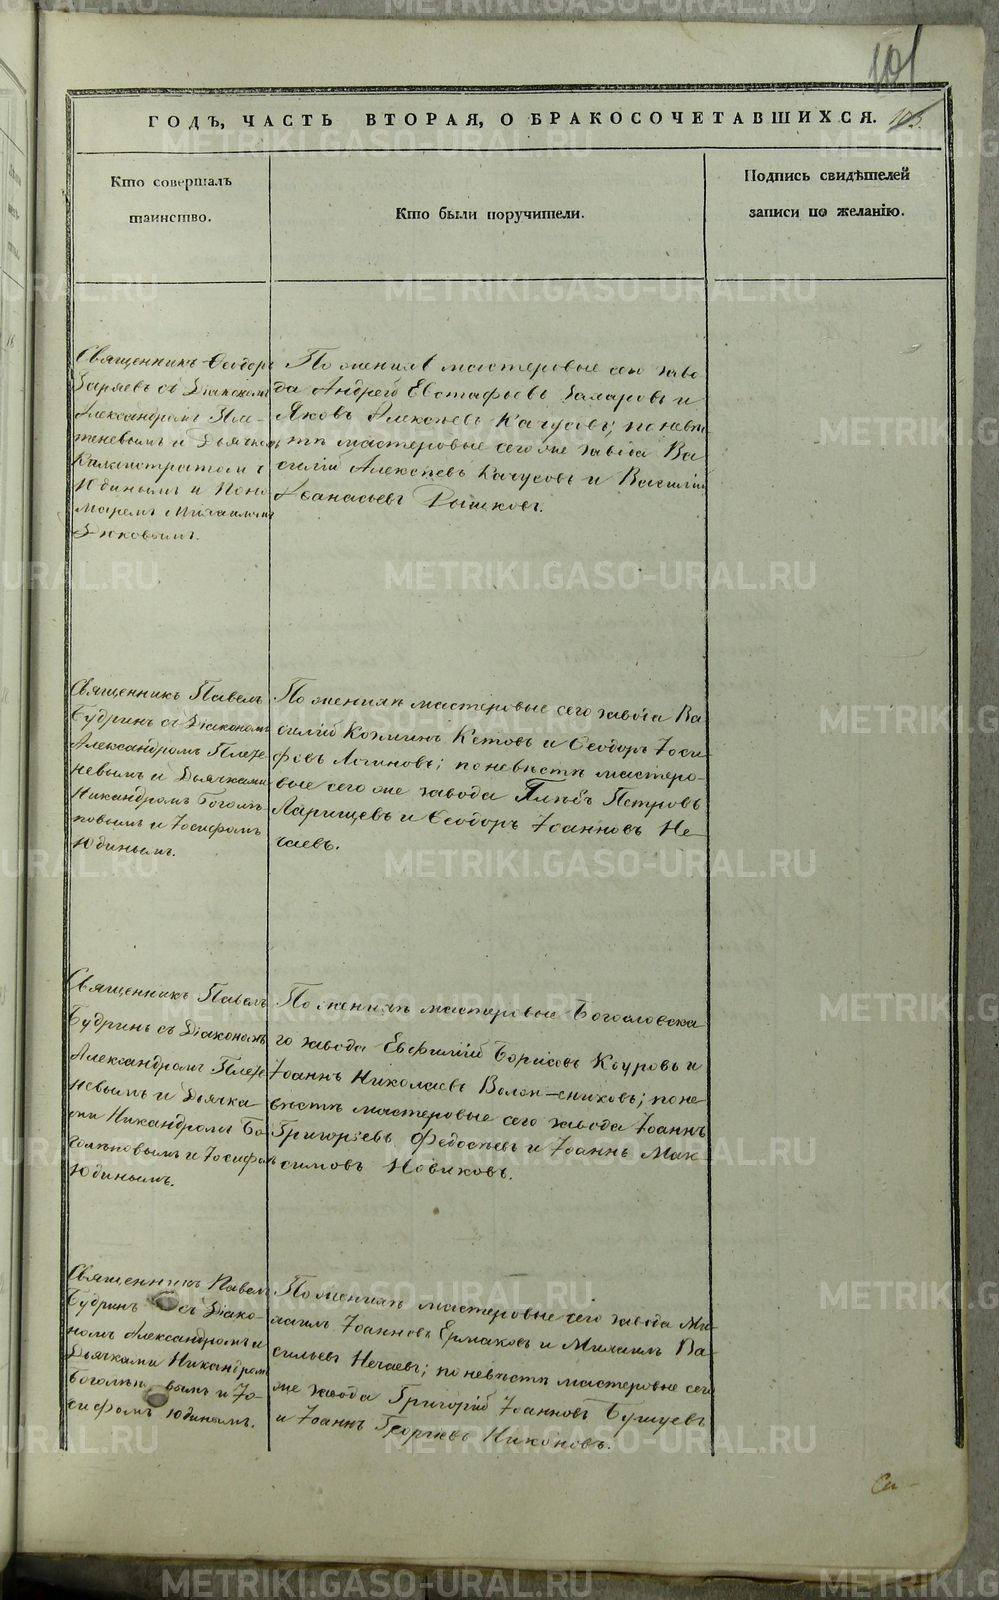 101
ГОДЪ, ЧАСТЬ ВТОРАЯ, О БРАКОСОЧЕТАВШИХСЯ. 103.
Кто совершалъ
таинство.
Кто были поручители.
Подпись свидѣтелей
записи по желанію.
Священникъ Ѳеодоръ
съ Діакономъ
Александромъ Пле-
теневымъ и Дьячкомъ
Каллистратомъ
Юдинымъ и Поно-
маремъ Михаиломъ
Зюковымъ.
По женихѣ мастеровые сего заво-
да Андрей Евстафьевъ и
Яковъ Алексѣевъ Качусовъ; по невѣс-
тѣ мастеровые сего же завода Ва-
силій Алексѣевъ Качусовъ и Василій
Аѳанасьевъ Рышковъ.
Священникъ Павелъ
Будринъ съ Діакономъ
Александромъ Плете-
невымъ и Дьячками
Никандромъ Боголѣ-
повымъ и Іосифомъ
Юдинымъ.
По женихѣ мастеровые сего завода Ва-
силій Козминъ Кетовъ и Ѳеодоръ Іоси-
фовъ Логиновъ; по невѣстѣ мастеро-
вые сего же завода Глѣбъ Петровъ
Ларищевъ и Ѳеодоръ Іоанновъ Не-
чаевъ.
Священникъ Павелъ
Будринъ съ Діакономъ
Александромъ Плете-
невымъ и Дьячка-
ми Никандромъ Бо-
голѣповымъ и Іосифомъ
Юдинымъ.
По женихѣ мастеровые Богословска-
го завода Евфимій Борисовъ Коуровъ и
Іоаннъ Николаевъ; по не-
вѣстѣ мастеровые сего завода Іоаннъ
Григорьевъ Федосѣевъ и Іоаннъ Мак-
симовъ Новиковъ.
Священникъ Павелъ
Будринъ съ Діако-
номъ Александромъ и
Дьячками Никандромъ
Боголѣповымъ и Іо-
сифомъ Юдинымъ.
По женихѣ мастеровые сего завода Ми-
хаилъ Іоанновъ Ермаковъ и Михаилъ Ва-
сильевъ Нечаевъ; по невѣстѣ мастеровые сего
же завода Григорій Іоанновъ Бушуевъ
и Іоаннъ Георгіевъ Никоновъ.
METRIKI.GASO-URAL.RU